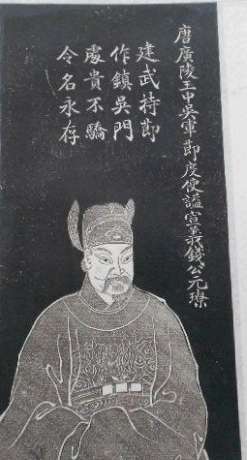 唐廣陵王中吳軍節度使諡宣義錢公元璙
建武持節
作鎮吳門
處貴不驕
令名永存